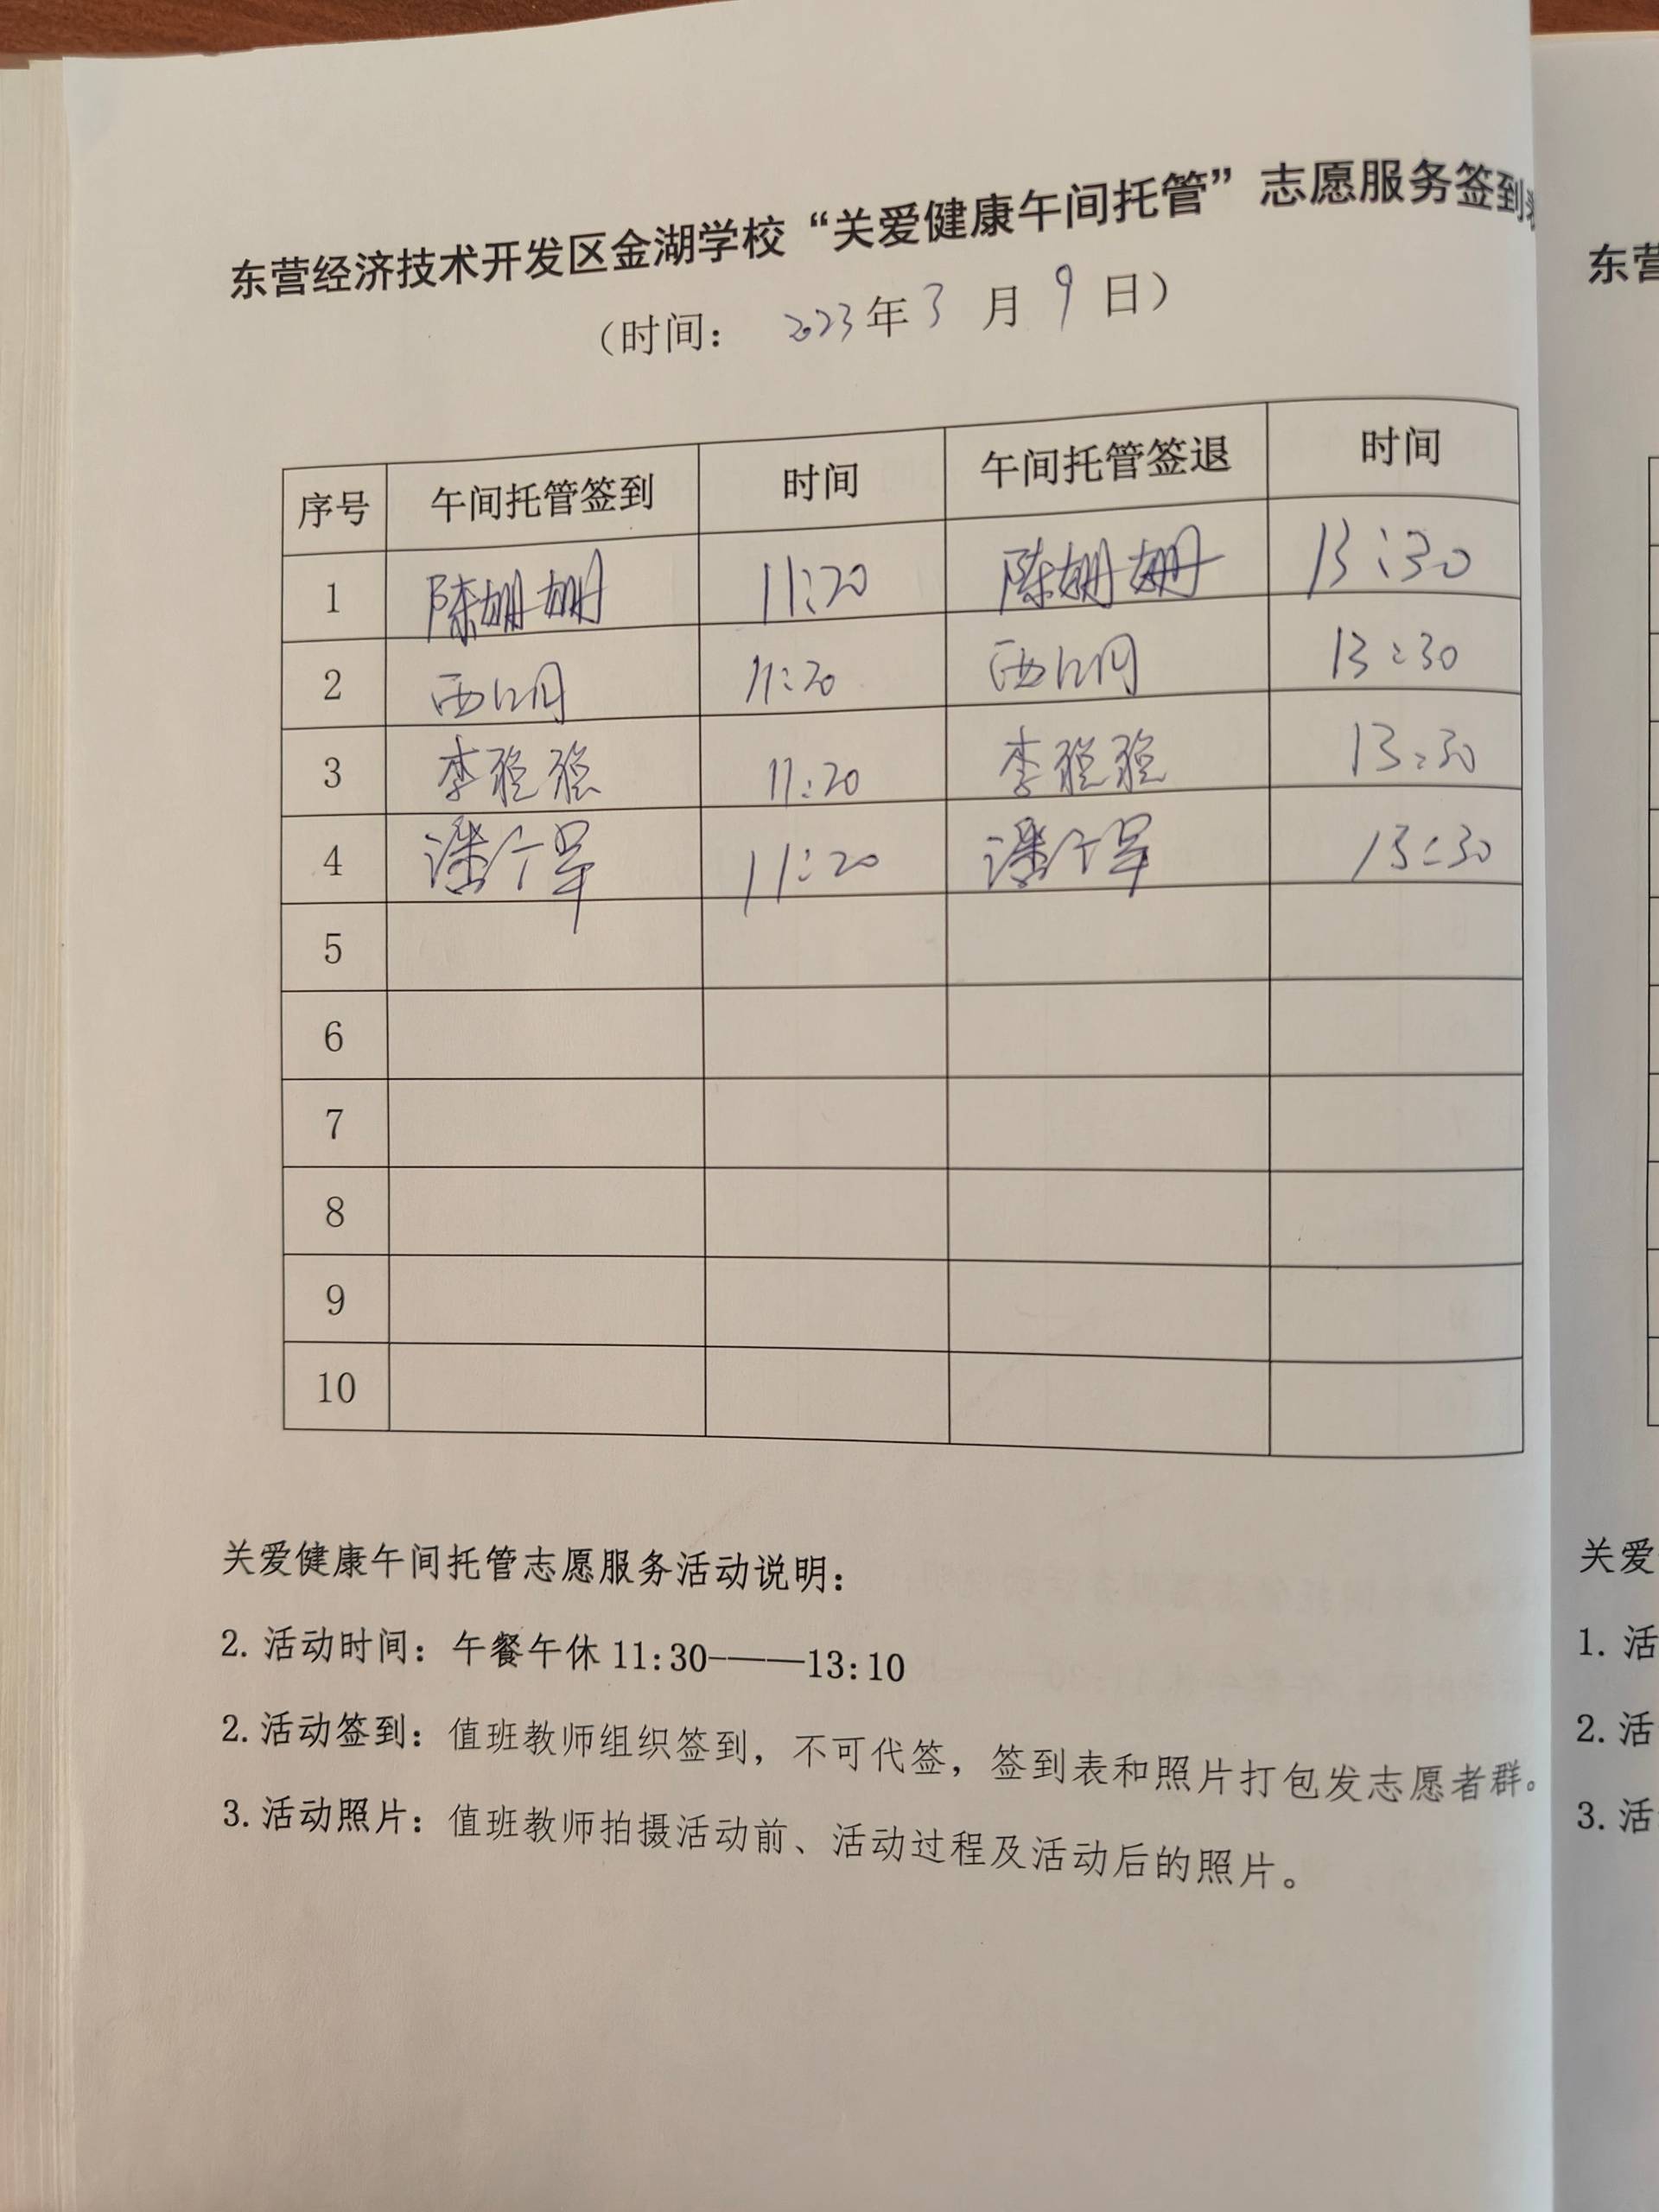 东营经济技术开发区金湖学校“关爱健康午间托管”志愿服务签到
（时间： 2023年3月9日）
序号 午间托管签到 时间 午间托管签退 时间
1 陈姗姗 11:20 陈姗姗 13:30
2 11:20 13:30
3 李 11:20 李 13:30
4 潘 11:20 潘 13:30
5
6
7
8
9
10
关爱健康午间托管志愿服务活动说明：
2. 活动时间：午餐午休 11:30-——13:10
2. 活动签到：值班教师组织签到，不可代签，签到表和照片打包发志愿者群。
3. 活动照片：值班教师拍摄活动前、活动过程及活动后的照片。
东营
关爱
1. 活
2. 活
3. 活